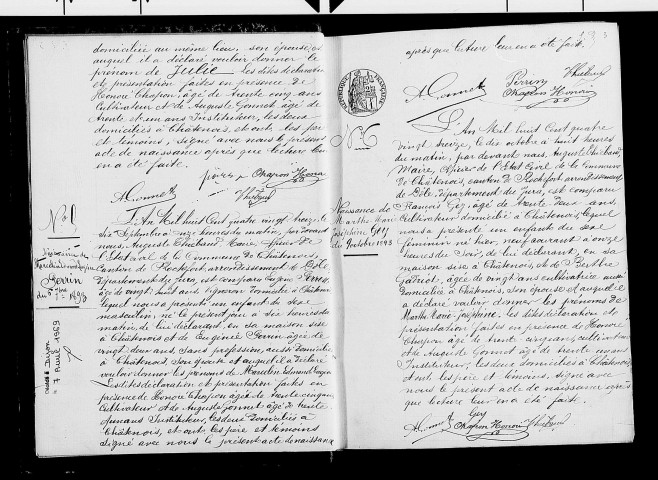 domiciliée au même lieu, son épouse, et
auquel il a déclaré vouloir donner le
prénom de Julie. Les dites déclaration
et présentation faites en présence de
Honoré Chapon, âgé de trente cinq ans
Cultivateur et de Auguste Gonnet âgé de
trente et un ans Instituteur, les deux
domiciliés à Châtenois, et ont les père
et témoins, signé avec nous le présent
acte de naissance après que lecture leur
en a été faite.
Chapon Honoré
A. Gonnet Thiébaud
N° 5
Naissance de
Perrin
du 5
1893
Décédé à Dijon
le 7 Avril 1969
L'An Mil huit cent quatre vingt treize, le
Septembre à onze heures du matin, par devant
nous, Auguste Thiébaud Maire, officier de
l'Etat civil de la Commune de Châtenois,
Canton de Rochefort, arrondissement de Dôle,
Département du Jura, est comparu Eugène Perrin
âgé de vingt huit ans Vigneron domicilié à Châtenois
lequel nous a présenté un enfant du sexe
masculin, né le présent jour à six heures du
matin, de lui déclarant, en sa maison sise
à Châtenois et de Eugénie Perrin âgée de
vingt deux ans Sans profession, aussi domiciliée
à Châtenois, Son épouse et auquel il a déclaré
vouloir donner les prénoms de Marcelin Edmond
Les dites déclaration et présentation faites en
présence de Honoré Chapon âgé de trente cinq ans
Cultivateur et de Auguste Gonnet âgé de trente
et un ans Instituteur, les deux domiciliés à
Châtenois, et ont, les père et témoins
signé avec nous le présent acte de naissance
3
après que lecture leur en a été faite.
A. Gonnet Perrin Thiébaud
Chapon Honoré
N° 6
Naissance de
Marthe Marie
Joséphine Guy
du 9 octobre 1893
L'An Mil huit Cent quatre
vingt treize, le dix octobre à huit heures
du matin, par devant nous, Auguste Thiébaud,
Maire, officier de l'Etat Civil de la Commune
de Châtenois, canton de Rochefort arrondissement
de Dôle, département du Jura, est comparu
François Guy, âgé de trente deux ans,
Cultivateur domicilié à Châtenois lequel
nous a présenté un enfant du sexe
féminin né hier, neuf courant à onze
heures du soir, de lui déclarant, en sa
maison sise à Châtenois, et de
Gatriot, âgée de vingt ans cultivatrice aussi
domiciliée à Châtenois, Son épouse et auquel il
a déclaré vouloir donner les prénoms de
Marthe Marie Joséphine. les dites déclaration et
présentation faites en présence de Honoré
Chapon âgé de trente cinq ans, cultivateur
et de Auguste Gonnet âgé de trente un ans
Instituteur, les deux domiciliés à Châtenois,
et ont, les père et témoins, signé avec
nous le présent acte de naissance après
que lecture leur en a été faite.
A. Gonnet Guy
Chapon Honoré Thiébaud